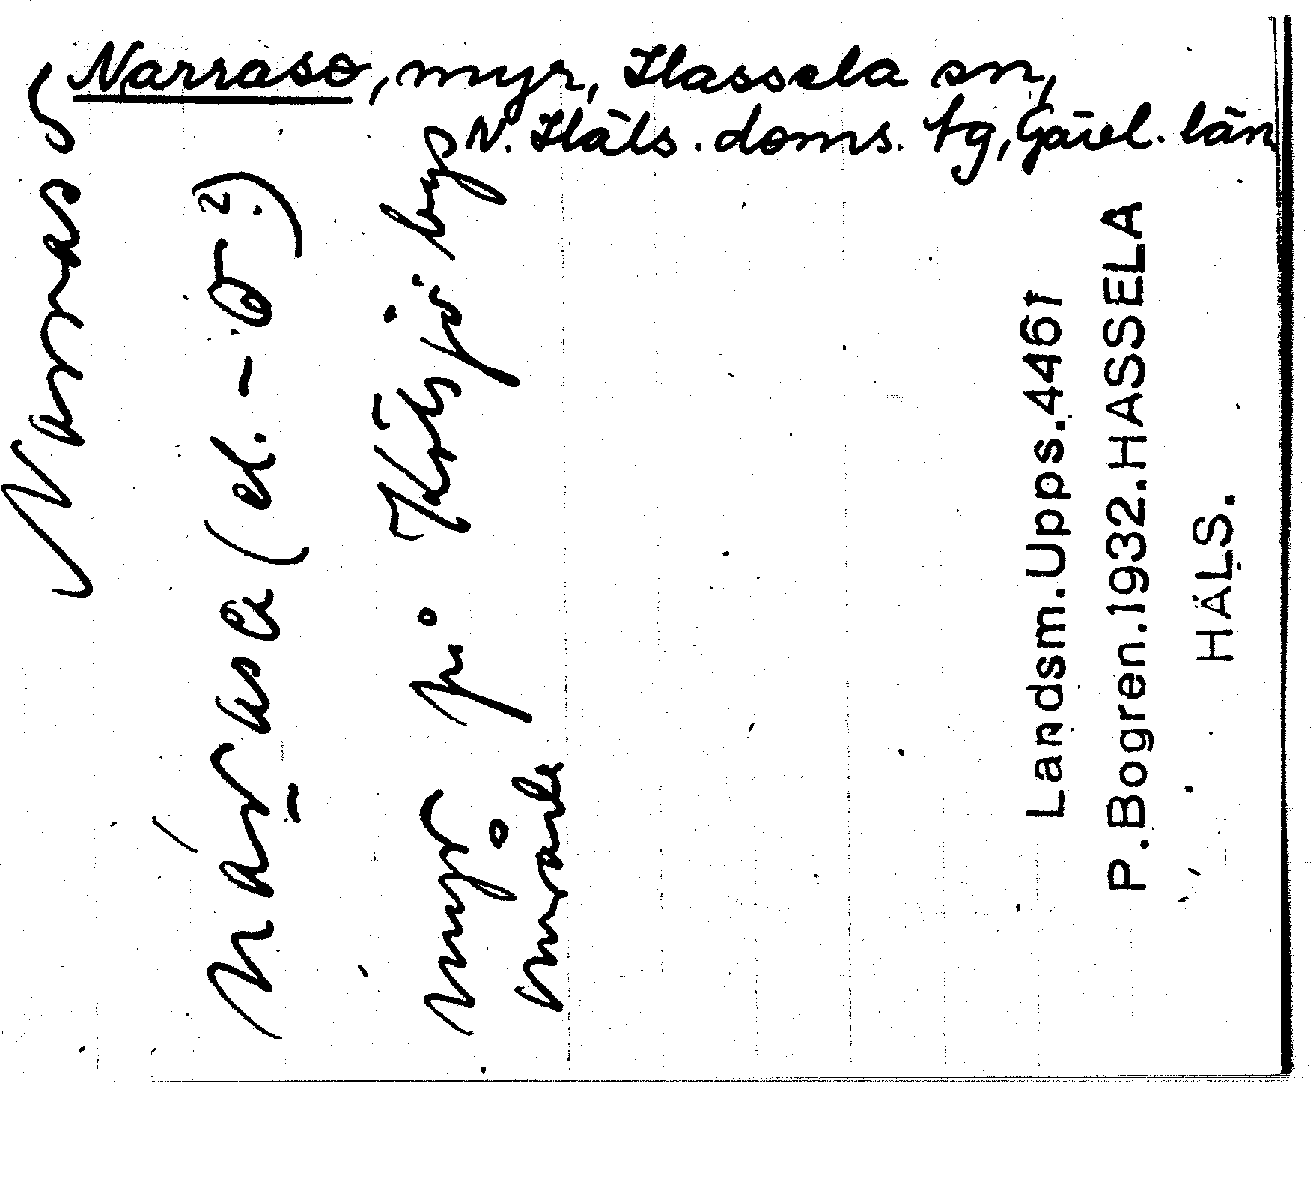 Narraso, myr, Hassela sn,
N. Häls. doms. tg, Gävl. län
Narraso
myr på Kölsjö bys
område
Landsm. Upps. 4461
P. Bogren. 1932. HASSELA
HÄLS.